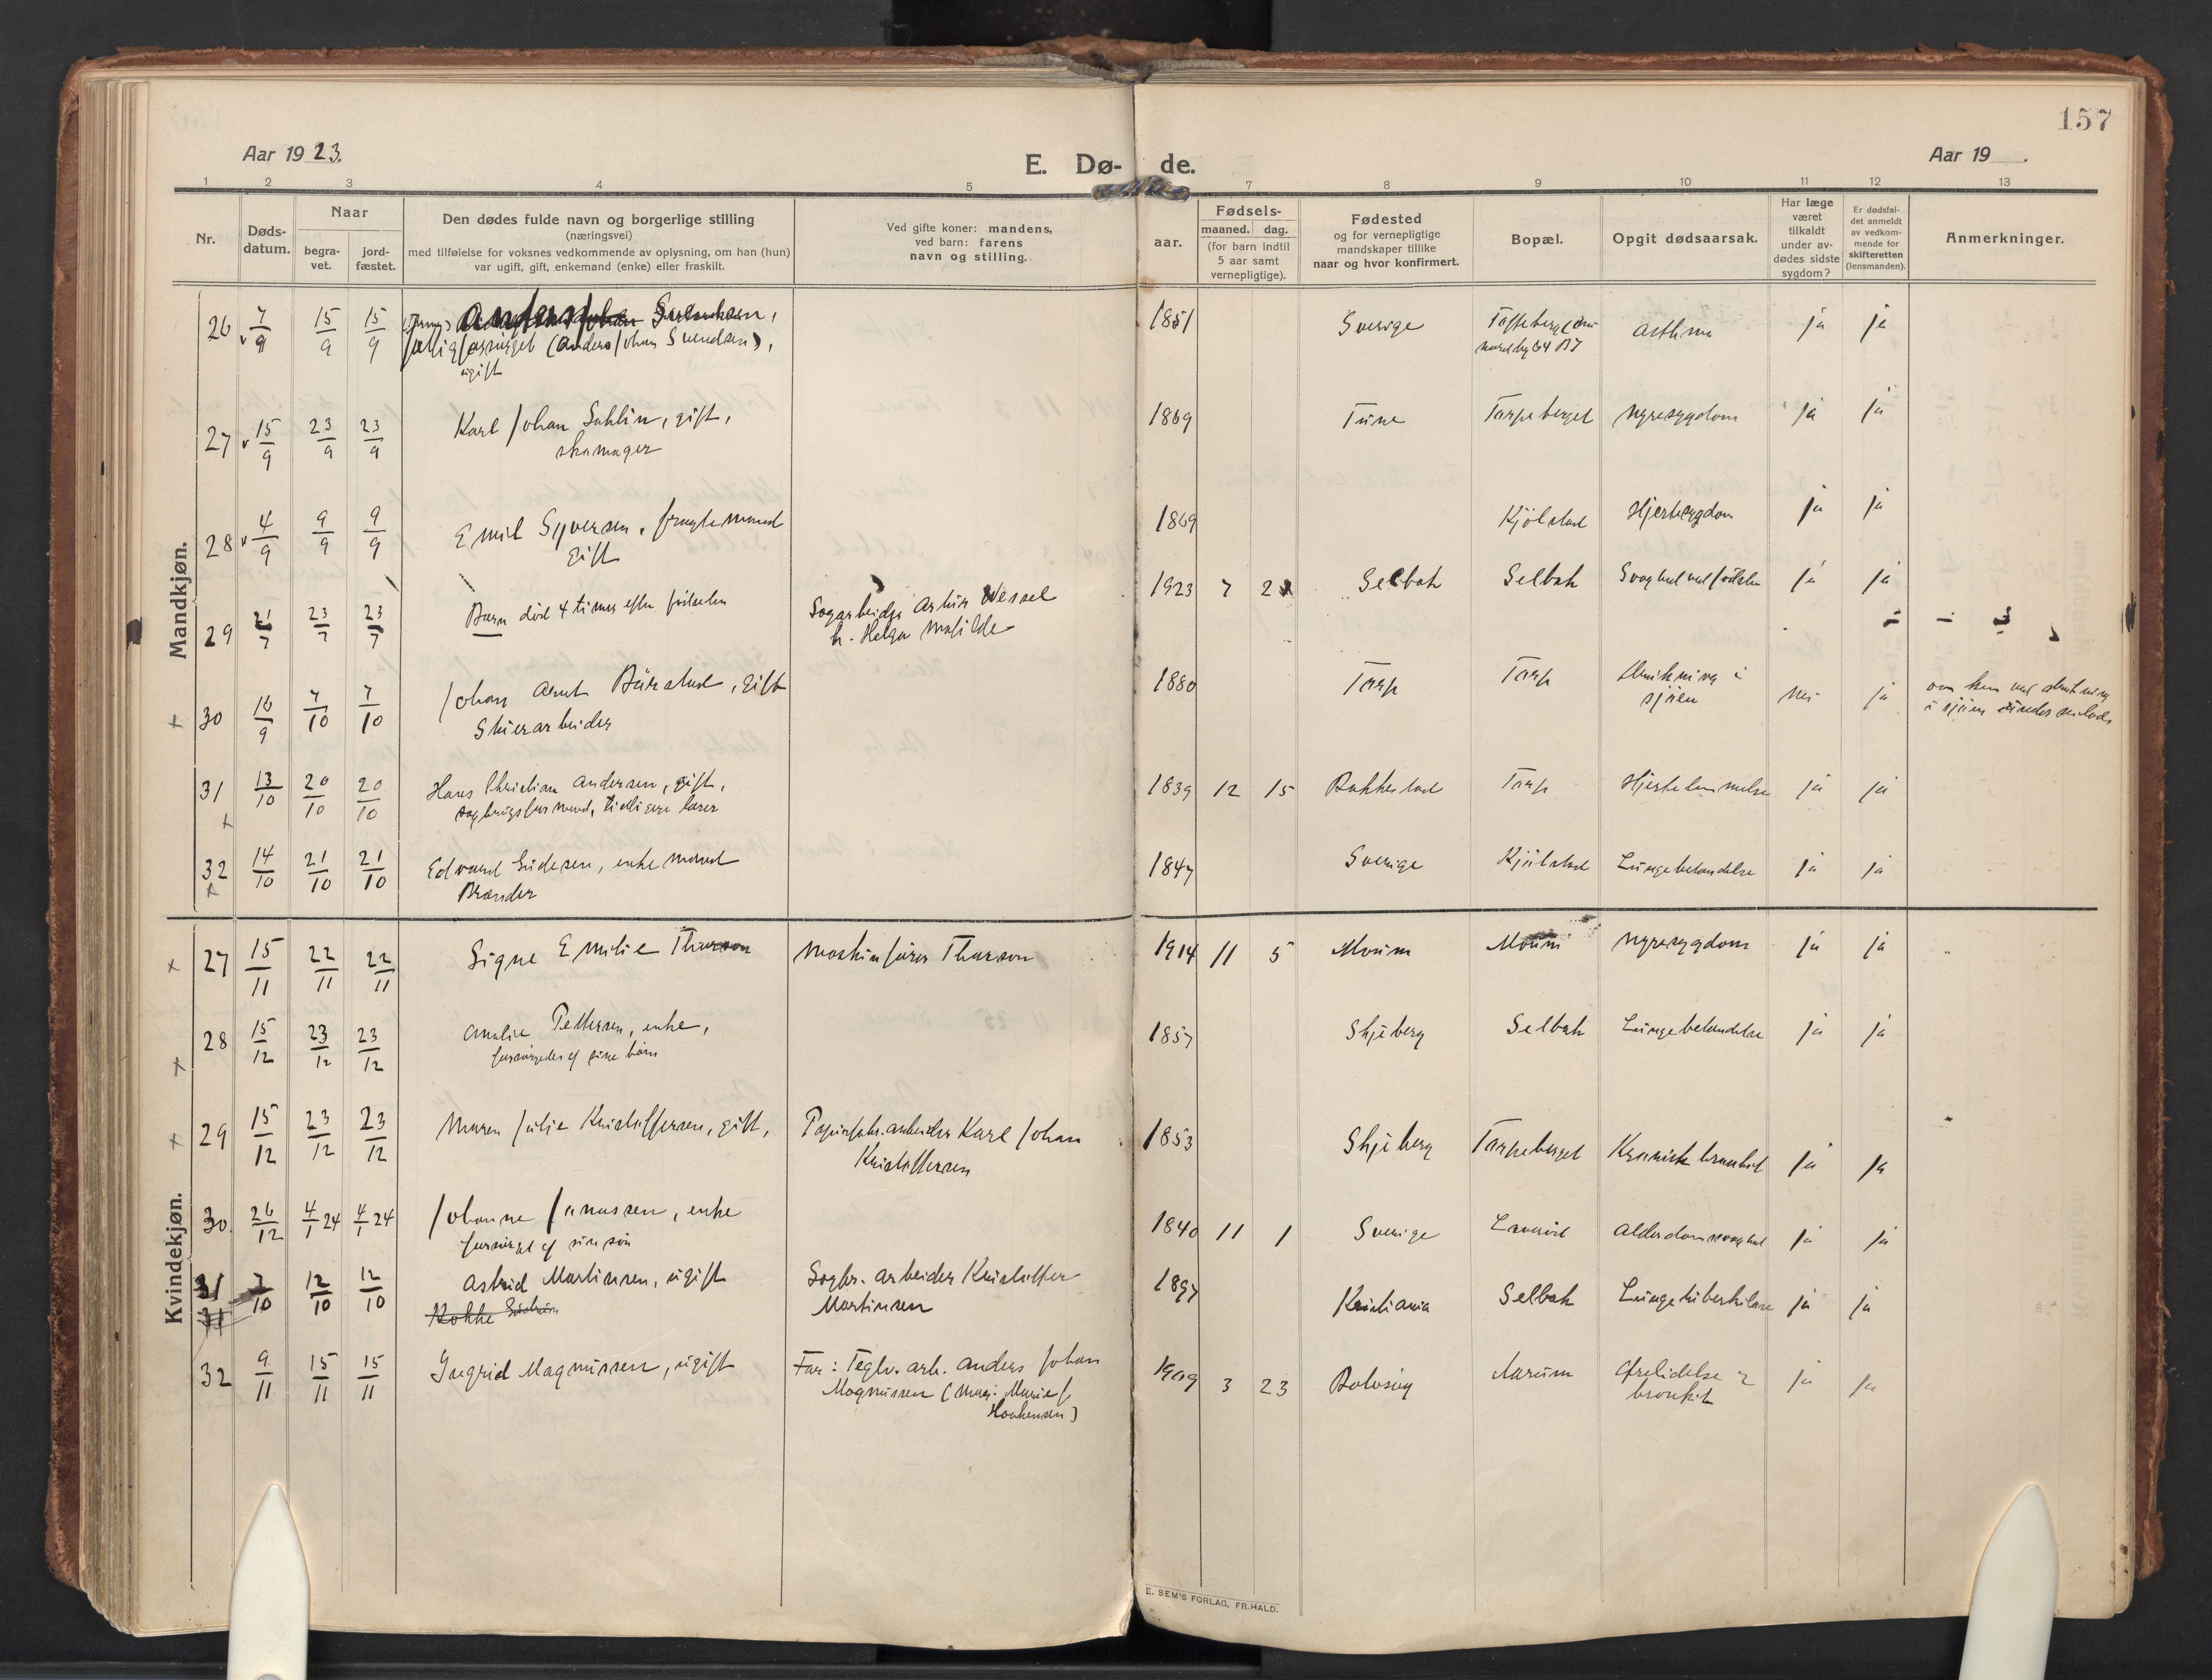 157
Aar 1923.
E. Dø- de.
Aar 19 .
1 2 3 4 5 7 8 9 10 11 12 13
Nr.
Døds-
datum.
Naar
begra-
vet.
jord-
fæstet.
Den dødes fulde navn og borgerlige stilling
(næringsvei)
med tilføielse for voksnes vedkommende av oplysning, om han (hun)
var ugift, gift, enkemand (enke) eller fraskilt.
Ved gifte koner: mandens,
ved barn: farens
navn og stilling.
aar.
Fødsels-
maaned. dag.
(for barn indtil
5 aar samt
vernepligtige).
Fødested
og for vernepligtige
mandskaper tillike
naar og hvor konfirmert.
Bopæl.
Opgit dødsaarsak.
Har læge
været
tilkaldt
under av-
dødes sidste
sygdom?
Er dødsfal-
det anmeldt
av vedkom-
mende for
skifteretten
(lensmanden).
Anmerkninger.
Mandkjøn.
26 7/9 15/9 15/9 Anders Johan Svendsen, 1851 Sverige asthma ja ja
(Anders Johan Svendsen),
ugift
27 15/9 23/9 23/9 Karl Johan Sahlin, gift, 1869 Tune Tarpeberget Nyresygdom ja ja
skomager
28 4/9 9/9 9/9 Emil Syversen, 1869 Kjölstad Hjertesygdom ja ja
gift
29 21/7 23/7 23/7 Barn död 4 timer efter födselen Sagarbeider Artur Wessel 1923 7 21 Selbak Selbak Svaghed ved födselen ja ja
h. Helga Matilde
30 16/9 7/10 7/10 Johan Arnt Burstad, gift 1880 Tarp Tarp Drukning i nei ja
Skiearbeider sjöen
31 13/10 20/10 20/10 Hans Christian Andersen, gift, 1839 12 15 Rakkestad Tarp Hjertelammelse ja ja
sagbrugsformand, tidligere lærer
32 14/10 21/10 21/10 Edvard Eidesen, enkemand 1847 Sverige Kjölstad Lungebetændelse ja ja
Brænder
Kvindekjøn.
27 15/11 22/11 22/11 Signe Emilie Thorson Maskinfører Thorson 1914 11 5 Moum Moum Nyresygdom ja ja
28 15/12 23/12 23/12 Amalie Pettersen, enke, 1857 Skjeberg Selbak Lungebetændelse ja ja
forsörgedes af sine börn
29 15/12 23/12 23/12 Maren Julie Kristoffersen, gift, Papirfabr.arbeider Karl Johan 1853 Skjeberg Tarpeberget Kronisk bronkit ja ja
Kristoffersen
30. 26/12 4/1 24 4/1 24 Johanne Jonassen, enke 1840 11 1 Sverige Alderdomssvaghed ja ja
forsörget af sin sön
31 7/10 12/10 12/10 Astrid Martinsen, ugift Sagbr. arbeider Kristoffer 1897 Kristiania Selbak Lungetuberkulose ja ja
Kokke Martinsen
32 9/11 15/11 15/11 Ingrid Magnussen, ugift Far: Teglv. arb. Anders Johan 1909 3 23 Rolvsöy Ørelidelse og ja ja
Magnussen (Mor: Marie f. bronkit
Haakensen)
E. SEM'S FORLAG, FR.HALD.